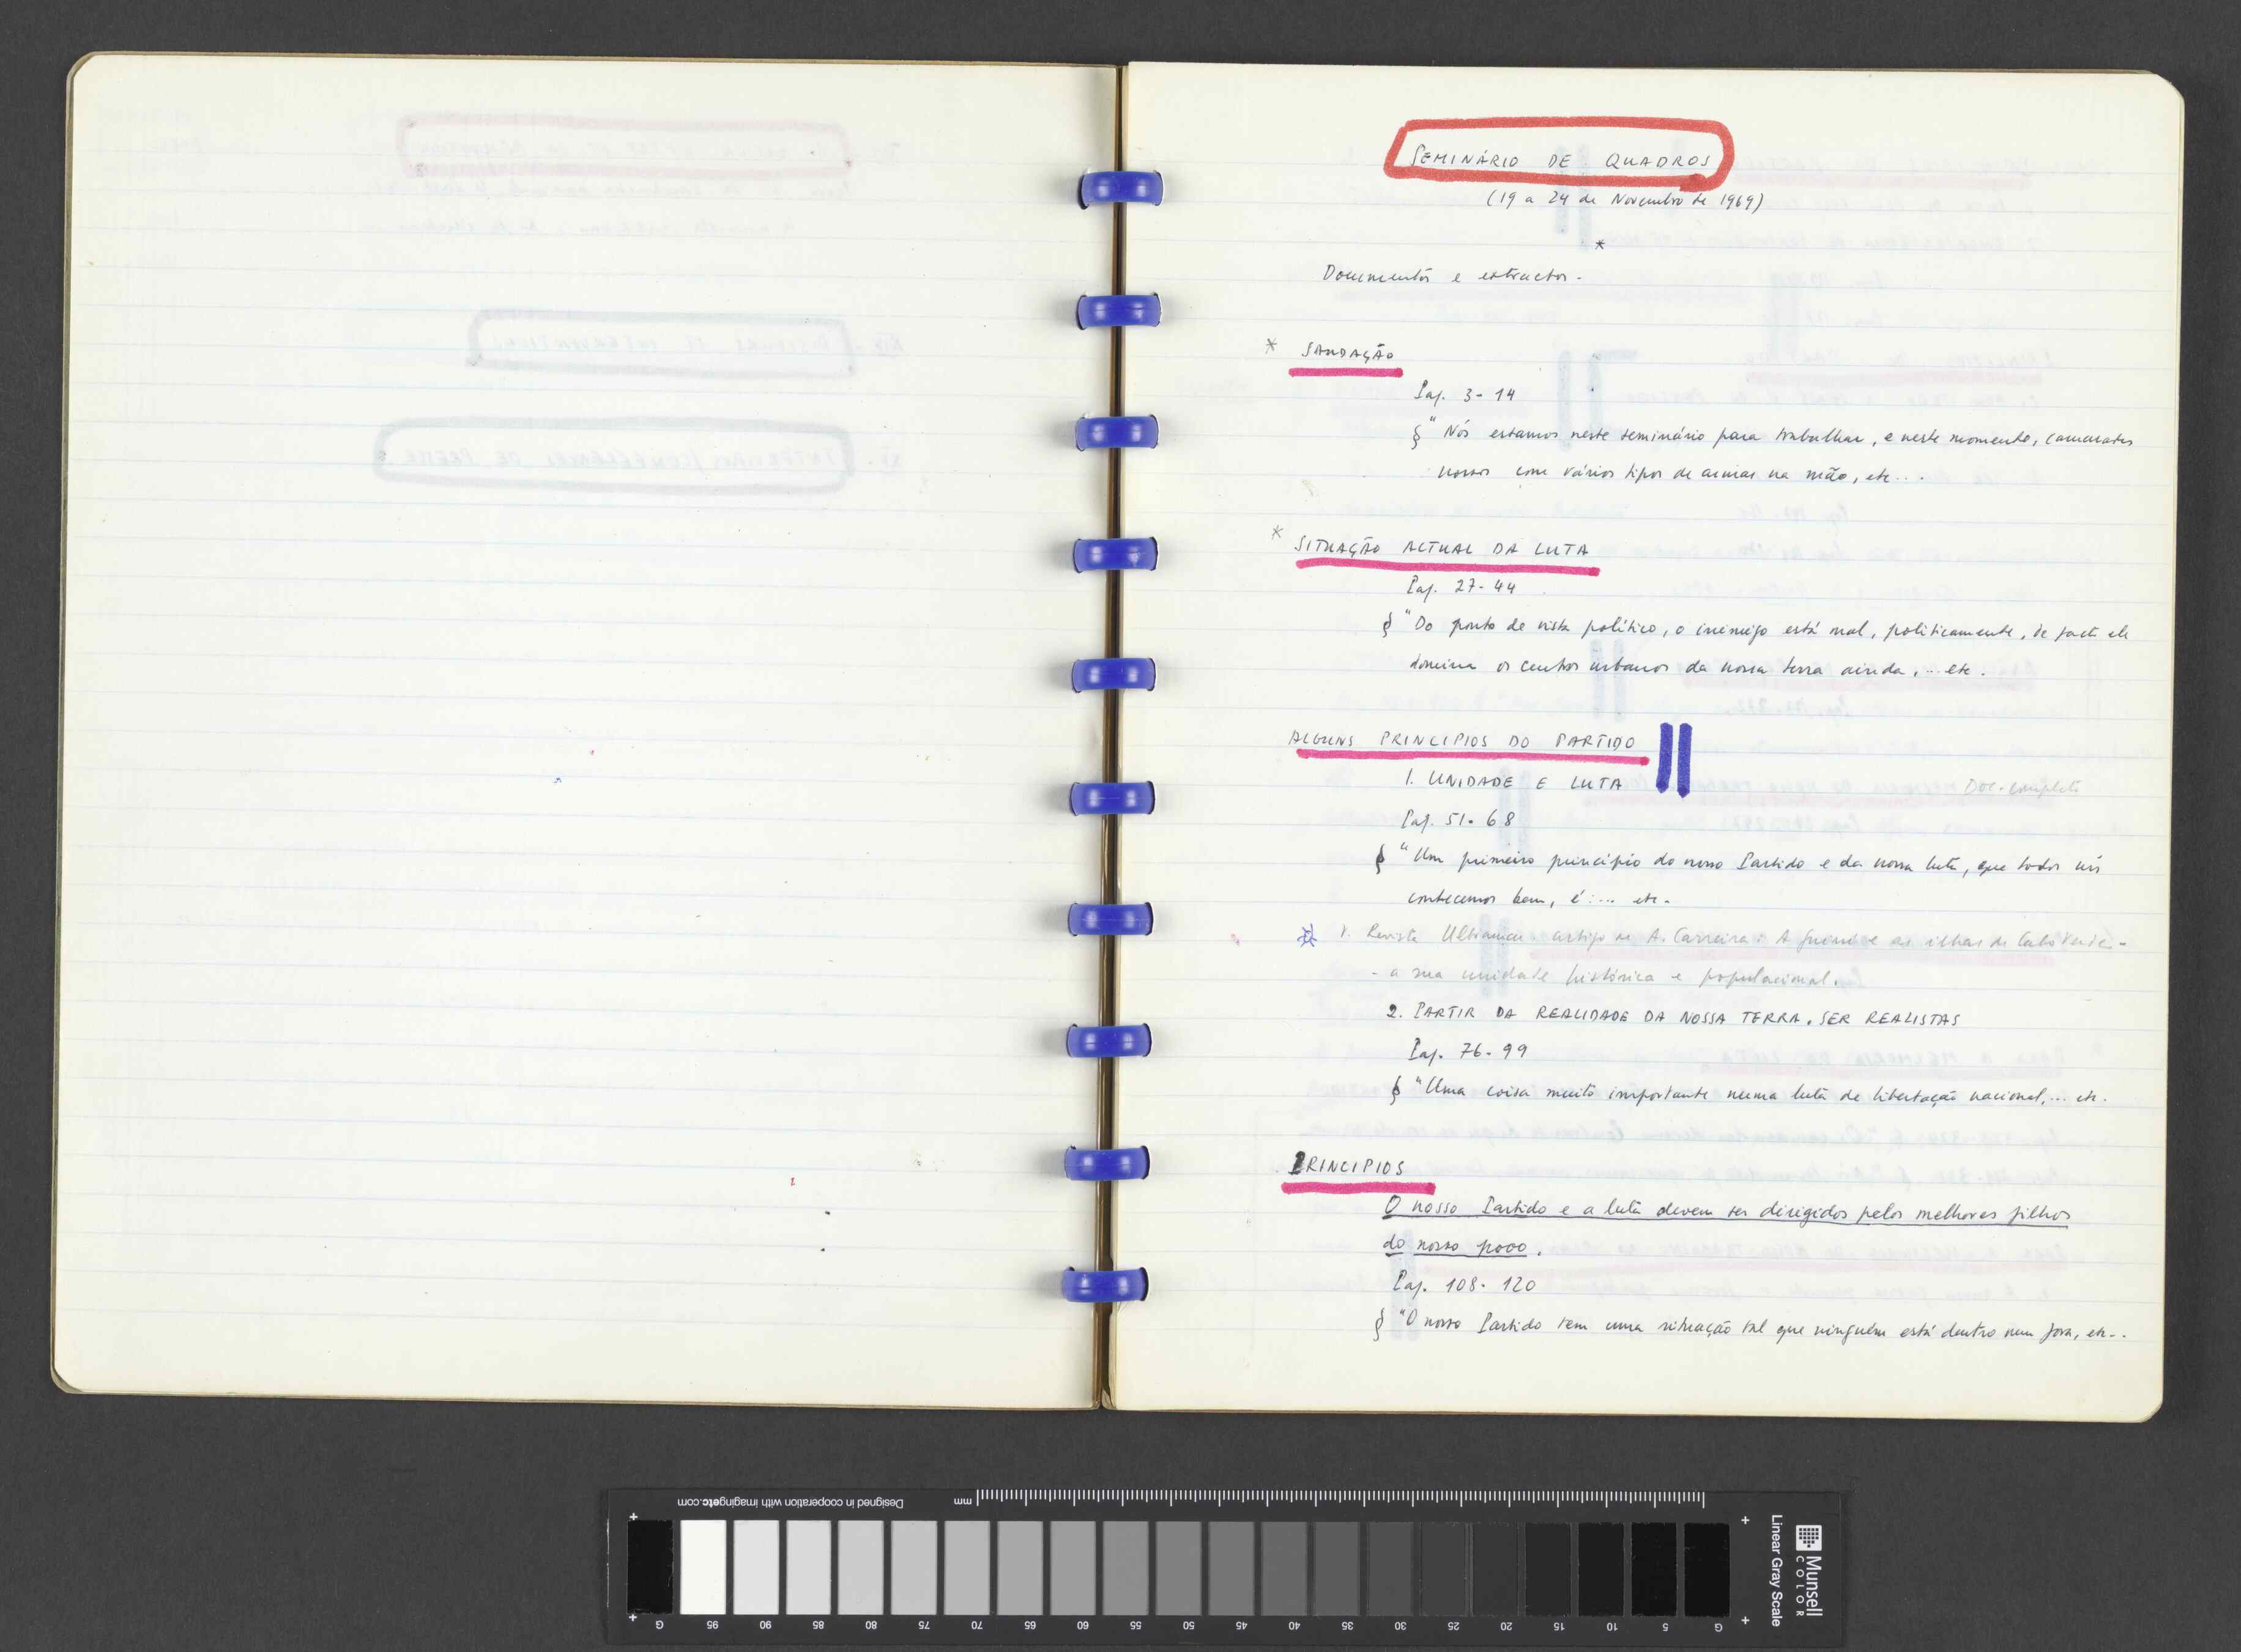 SEMINÁRIO DE QUADROS
(19 a 24 de Novembro de 1969)
*
Documentos e extractos -
* SAUDAÇÃO
Pag. 3-14
§ "Nós estamos neste seminário para trabalhar, e neste momento, camaradas
nossos com vários tipos de armas na mão, etc...
* SITUAÇÃO ACTUAL DA LUTA
Pag. 27-44
§ "Do ponto de vista político, o inimigo está mal, politicamente, de facto ele
domina os centros urbanos da nossa terra ainda, ... etc.
ALGUNS PRINCIPIOS DO PARTIDO
1. UNIDADE E LUTA Doc. completo
Pag. 51-68
§ "Um primeiro princípio do nosso Partido e da nossa luta, que todos nós
conhecemos bem, é: ... etc.
* V. Revista Ultramar - artigo de A. Carreira: A Guiné e as ilhas de Cabo Verde -
- a sua unidade histórica e populacional.
2. PARTIR DA REALIDADE DA NOSSA TERRA. SER REALISTAS
Pag. 76-99
§ "Uma coisa muito importante numa luta de libertação nacional, ... etc.
PRINCIPIOS
O nosso Partido e a luta devem ser dirigidos pelos melhores filhos
do nosso povo.
Pag. 108-120
§ "O nosso Partido tem uma situação tal que ninguém está dentro nem fora, etc..
Designed in cooperation with imagingetc.com
mm
Munsell
COLOR
Linear Gray Scale
G 95 90 85 80 75 70 65 60 55 50 45 40 35 30 25 20 15 10 5 G